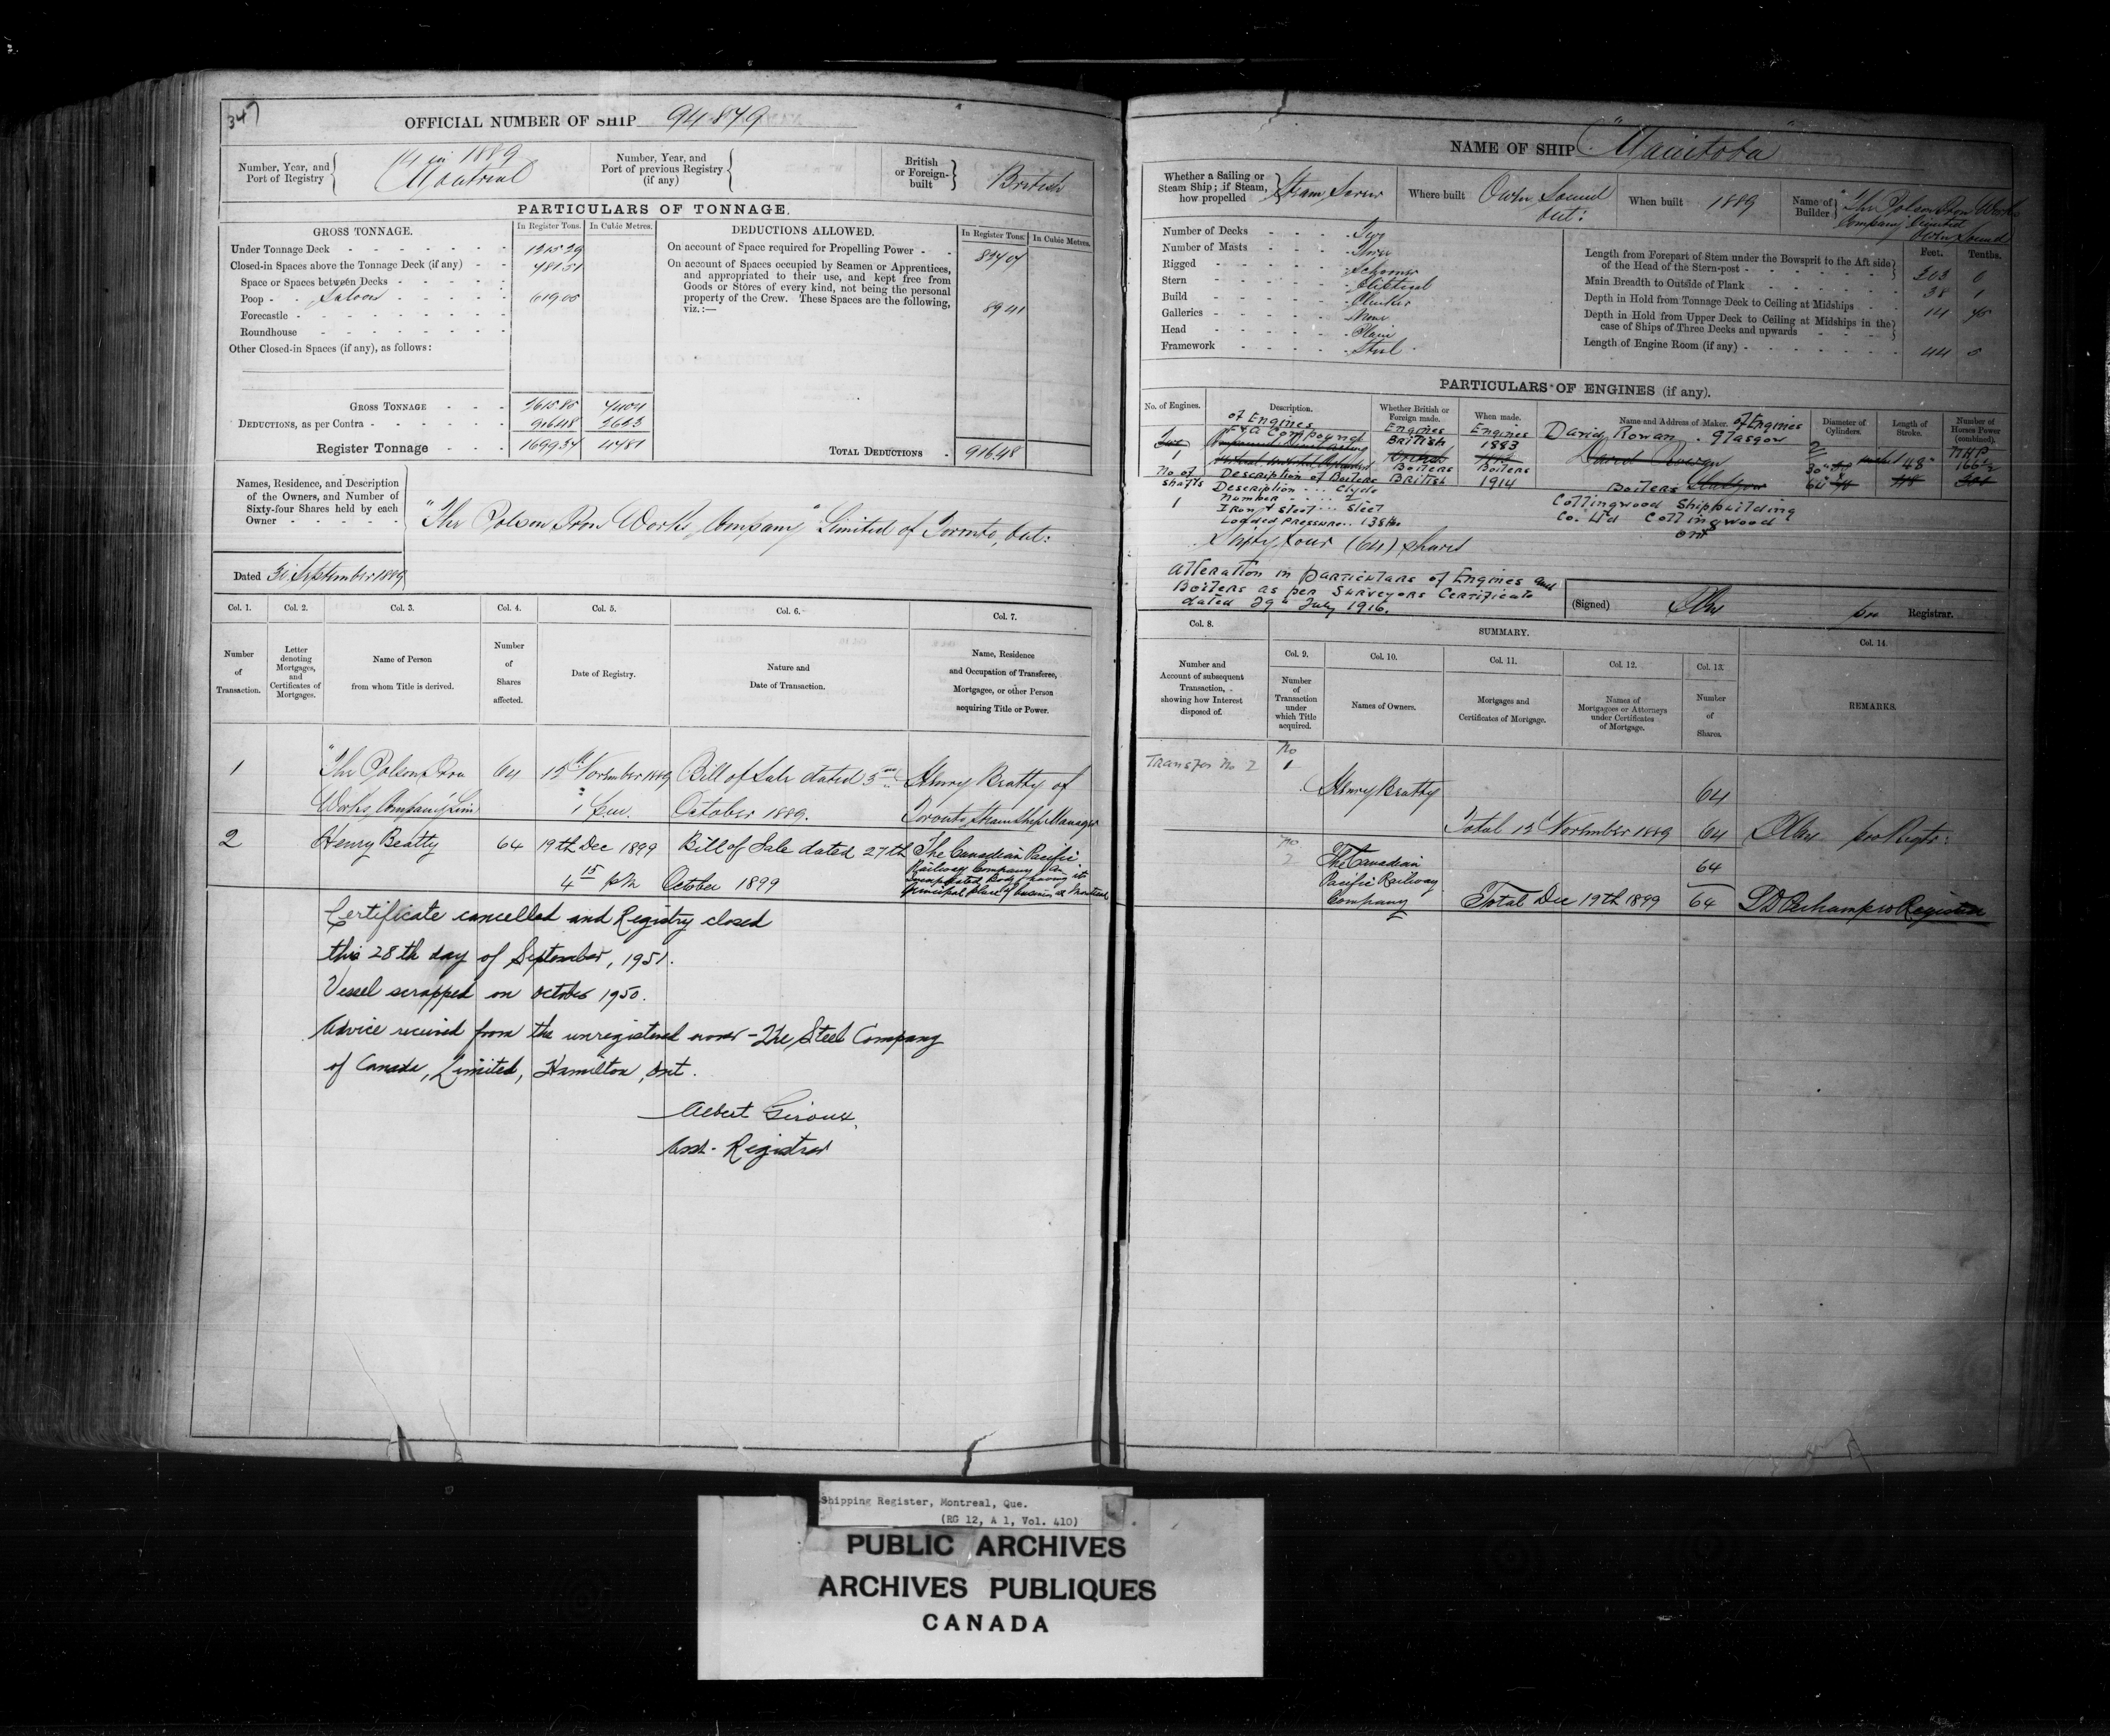 347
OFFICIAL NUMBER OF SHIP 94.879
Number, Year, and Port of Registry
14 in 1889
Montreal
Number, Year, and Port of previous Registry (if any)
British or Foreign-built
British
PARTICULARS OF TONNAGE.
GROSS TONNAGE.
In Register Tons.
In Cubic Metres.
Under Tonnage Deck
Closed-in Spaces above the Tonnage Deck (if any)
481.51
Space or Spaces between Decks
Poop Saloon 619.00
Forecastle
Roundhouse
Other Closed-in Spaces (if any), as follows:
GROSS TONNAGE 2615.85
DEDUCTIONS, as per Contra 916.48
Register Tonnage 1699.37
DEDUCTIONS ALLOWED.
In Register Tons.
In Cubic Metres.
On account of Space required for Propelling Power 827.07
On account of Spaces occupied by Seamen or Apprentices, and appropriated to their use, and kept free from Goods or Stores of every kind, not being the personal property of the Crew. These Spaces are the following, viz.:— 89.41
TOTAL DEDUCTIONS 916.48
Names, Residence, and Description of the Owners, and Number of Sixty-four Shares held by each Owner
"The Polson Iron Works Company" Limited of Toronto, Ont:
Dated September 1889
Col. 1.
Col. 2.
Col. 3.
Col. 4.
Col. 5.
Col. 6.
Col. 7.
Number of Transaction.
Letter denoting Mortgages, and Certificates of Mortgages.
Name of Person from whom Title is derived.
Number of Shares affected.
Date of Registry.
Nature and Date of Transaction.
Name, Residence and Occupation of Transferee, Mortgagee, or other Person acquiring Title or Power.
1 "The Polson Iron 64 12th November 1889 Bill of Sale dated 3rd Henry Beatty of
Works Company" Lim October 1889. Toronto Steam Ship Manager
2 Henry Beatty 64 19th Dec 1899 Bill of Sale dated 27th The Canadian Pacific
4 15 pm October 1899 Railway Company An
incorporated Body having its
principal place of business at Montreal
Certificate cancelled and Registry closed
this 28th day of September, 1951.
Vessel scrapped on October 1950.
Advice received from the unregistered owner - The Steel Company
of Canada, Limited, Hamilton, Ont.
Albert Giroux,
Asst. Registrar
NAME OF SHIP "Manitoba"
Whether a Sailing or Steam Ship; if Steam, how propelled
Steam Screw
Where built
Owen Sound
Ont:
When built
1889
Name of Builder
"The Polson Iron Works
Company" Limited
Owen Sound
Number of Decks Two
Number of Masts Three
Rigged Schooner
Stern Eliptical
Build Clincker
Galleries None
Head Plain
Framework Steel
Feet.
Tenths.
Length from Forepart of Stem under the Bowsprit to the Aft side of the Head of the Stern-post 303 0
Main Breadth to Outside of Plank 38 1
Depth in Hold from Tonnage Deck to Ceiling at Midships 14
Depth in Hold from Upper Deck to Ceiling at Midships in the case of Ships of Three Decks and upwards
Length of Engine Room (if any) 44 0
PARTICULARS OF ENGINES (if any).
No. of Engines.
Description.
of Engines
Whether British or Foreign made.
Engines
British
When made.
Engines
1883
Name and Address of Maker. of Engines
David Rowan. Glasgow
Diameter of Cylinders.
Length of Stroke.
Number of Horses Power (combined).
F & A Compound
1
2
30"
60"
48"
NHP
No of shafts
1
Description of Boilers
Boilers
British
Boilers
1914
Description Clyde
Number 2
Iron or Steel Steel
Loaded Pressure 138 lbs
Boilers
Collingwood Shipbuilding
Co. Ltd Collingwood
Ont
Sixty four (64) shares
Alteration in particulars of Engines and
Boilers as per Surveyors Certificate
dated 29th July 1916.
(Signed)
pro Registrar.
Col. 8.
SUMMARY.
Col. 9.
Col. 10.
Col. 11.
Col. 12.
Col. 13.
Col. 14.
Number and Account of subsequent Transaction, showing how Interest disposed of.
Number of Transaction under which Title acquired.
Names of Owners.
Mortgages and Certificates of Mortgage.
Names of Mortgagees or Attorneys under Certificates of Mortgage.
Number of Shares.
REMARKS.
Transfer No 2
No
1
Henry Beatty 64
Total 12 November 1889 64 pro Regtr:
No
2
The Canadian 64
Pacific Railway
Company Total Dec 19th 1899 64 pro Registrar
Shipping Register, Montreal, Que.
(RG 12, A 1, Vol. 410)
PUBLIC ARCHIVES
ARCHIVES PUBLIQUES
CANADA